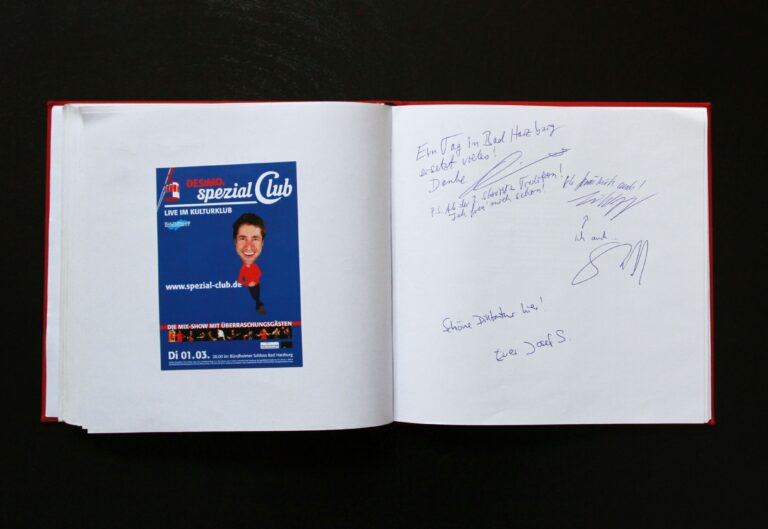 DESiMOs
spezial Club
LIVE IM KULTURKLUB
www.spezial-club.de
DIE MIX-SHOW MIT ÜBERRASCHUNGSGÄSTEN
Di 01.03. 20.00 im Bündheimer Schloss Bad Harzburg
Ein Tag in Bad Harzburg
ersetzt vieles!
Danke
P.S. Ab der 2. Show ist's Tradition!
Ich freu mich schon!
Ich auch!
ich auch
Schöne Diktatur hier!
Euer Josef S.